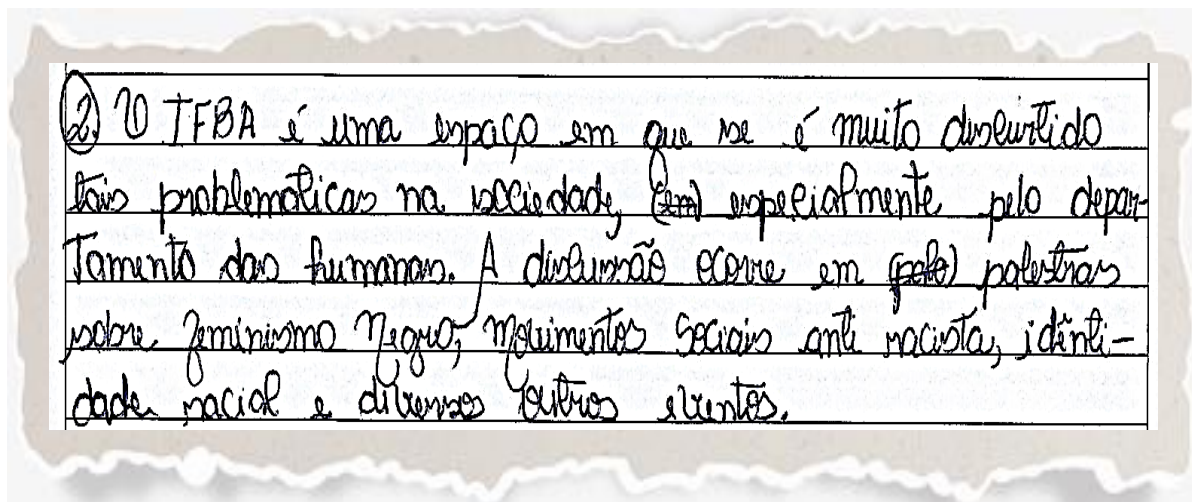 2. O IFBA é uma espaço em que se é muito discutido
tais problemáticas na sociedade, (em) especialmente pelo depar-
tamento das humanas. A discussão ocorre em (pale) palestras
sobre feminismo negro, movimentos sociais anti racista, identi-
dade racial e diversos outros eventos.